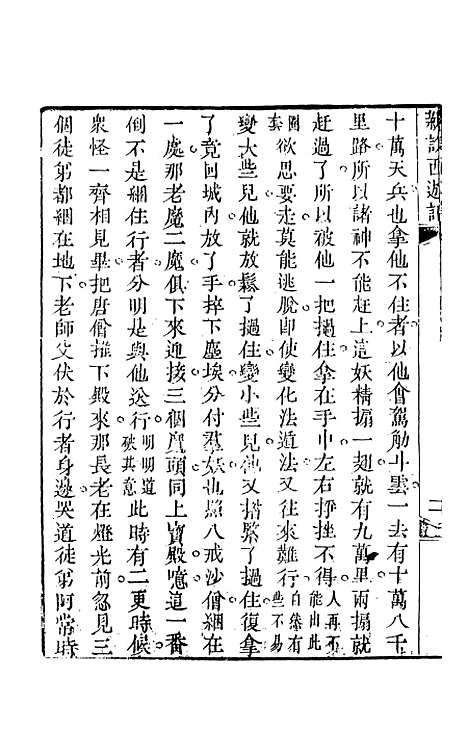 新說西遊記
十萬天兵也拿他不住者以他會駕觔斗雲一去有十萬八千
里路所以諸神不能赶上這妖精搧一翅就有九萬里兩搧就
赶過了所以被他一把撾住拿在手中左右挣挫不得人再不能由此
圈套欲思要走莫能逃脫卽使變化法遁法又往來難行自然有些不易
變大些兒他就放鬆了撾住變小些兒他又揝緊了撾住復拿
了竟回城內放了手捽下塵埃分付羣妖也照八戒沙僧綑在
一處那老魔二魔俱下來迎接三個魔頭同上寶殿噫這一番
倒不是綑住行者分明是與他送行明明道破其意此時有二更時候
衆怪一齊相見畢把唐僧推下殿來那長老在燈光前忽見三
個徒弟都綑在地下老師父伏於行者身邊哭道徒弟阿常時